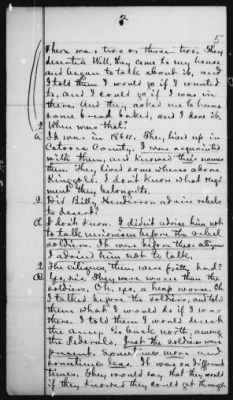 5
There was two or three too. They
deserted Will, they came to my house
and began to talk about it, and
I told them I would go if I wanted
to, and I could go if I was in
there, And they asked me to have
some bread baked, and I done it.
Q When was that?
A It was in 1864. They lived up in
Catoosa County. I was acquainted
with them, and knowed their names
then. They lived somewhere above
Ringgold. I don't know what regi
ment they belonged to.
Q Did Billy Henderson advise rebels
to desert?
A I don't know. I didn't advise him not
to talk unionism before the rebel
soldiers. It was before these citizens
I advised him not to talk.
Q The citizens, then, were pretty bad?
A Yes, sir. They were worse than the
soldiers. Oh, yes, a heap worse. Oh
I talked before the soldiers, and told
them what I would do if I was
there. I told them I would
the army, go back north, among
the Federals. Just the soldiers were
present. Sometimes more and
sometimes less. It was on different
times. They would say that they would
if they knowed they could get through